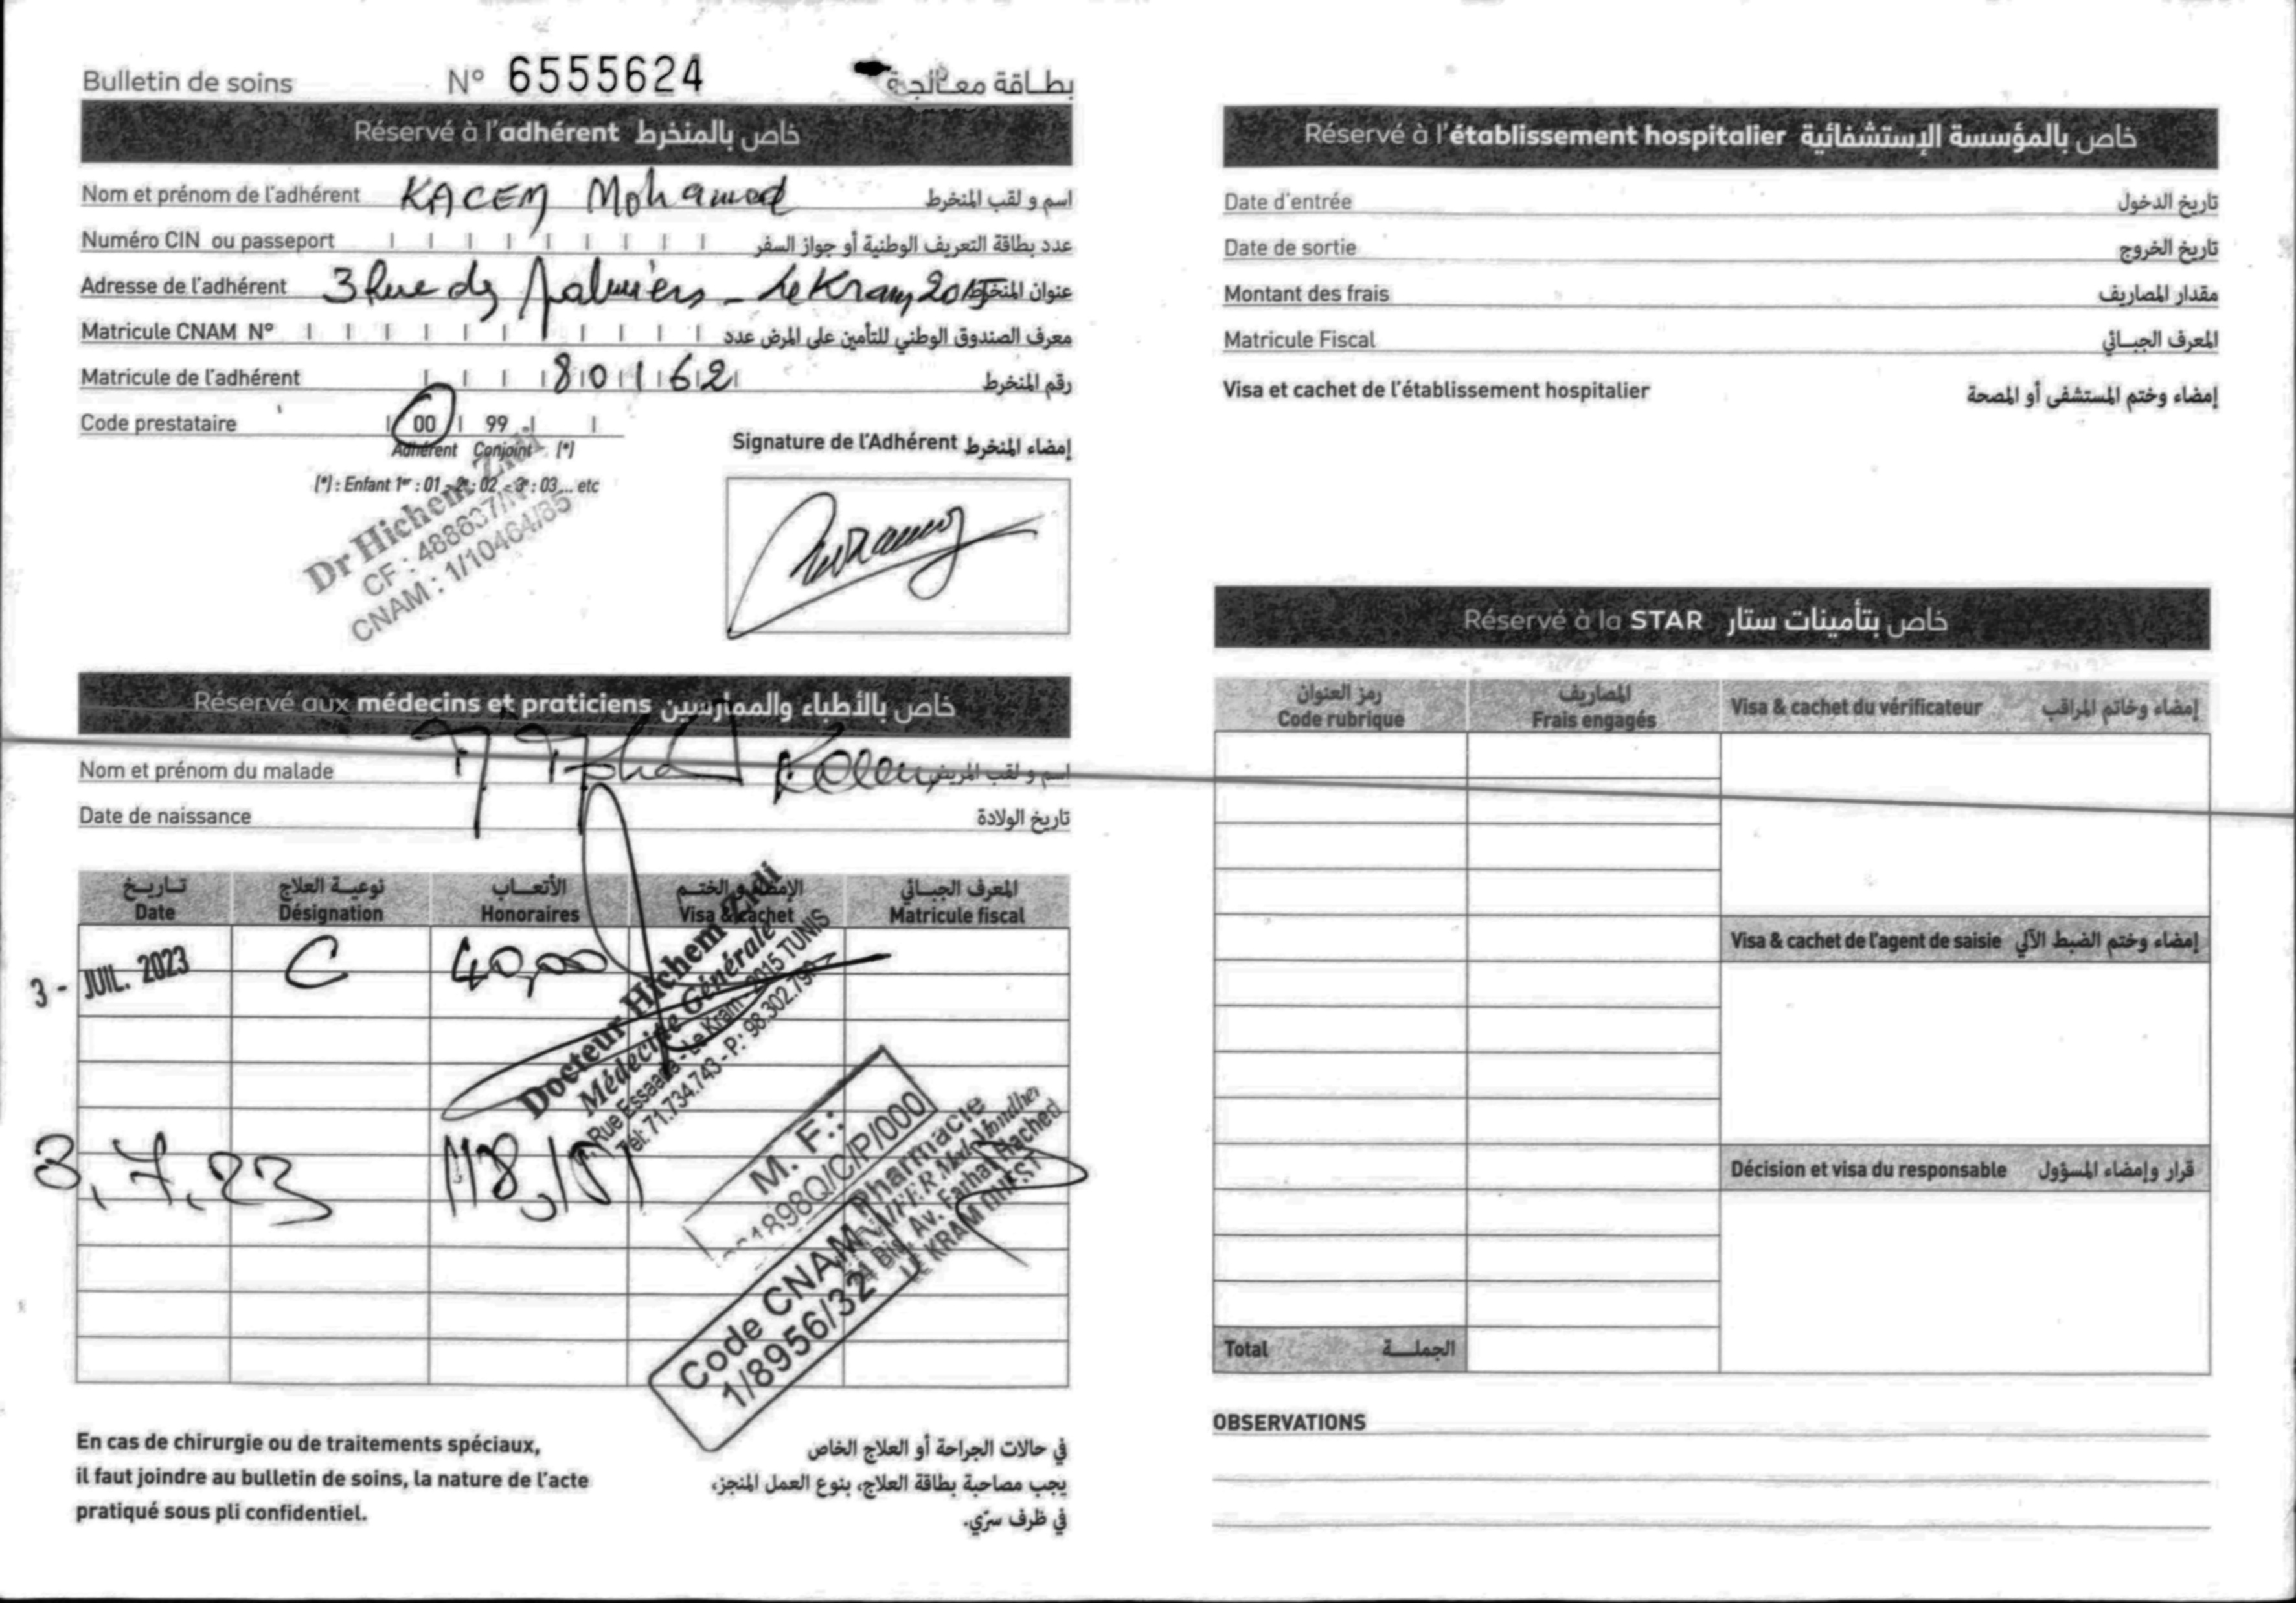 Bulletin de soins N° 6555624 بطاقة معالجة
Réservé à l'adhérent خاص بالمنخرط
Nom et prénom de l'adhérent KACEM Mohamed اسم و لقب المنخرط
Numéro CIN ou passeport عدد بطاقة التعريف الوطنية أو جواز السفر
Adresse de l'adhérent 3 Rue des Palmiers - Le Kram 2015 عنوان المنخرط
Matricule CNAM N° معرف الصندوق الوطني للتأمين على المرض عدد
Matricule de l'adhérent 801162 رقم المنخرط
Code prestataire 00 99
Adhérent Conjoint (*)
(*) : Enfant 1er : 01 - 2e : 02 - 3e : 03... etc
Signature de l'Adhérent إمضاء المنخرط
Dr Hichem Zidi
CF : 488637/
CNAM : 1/10464/85
Réservé aux médecins et praticiens خاص بالأطباء والممارسين
Nom et prénom du malade اسم و لقب المريض
Date de naissance تاريخ الولادة
تاريخ نوعية العلاج الأتعاب الإمضاء و الختم المعرف الجبائي
Date Désignation Honoraires Visa & cachet Matricule fiscal
3 - JUIL. 2023 C 40,00
Docteur Hichem Zidi
Médecine Générale
Rue Essaada - Le Kram - 2015 TUNIS
Tél: 71.734.743 - P: 98.302.79
3.7.23 118,101
M. F.:
1898Q/C/P/000
Pharmacie
Med Mondher
Bis, Av. Farhat Hached
LE KRAM OUEST
Code CNAM
1/8956/32
En cas de chirurgie ou de traitements spéciaux,
il faut joindre au bulletin de soins, la nature de l'acte
pratiqué sous pli confidentiel.
في حالات الجراحة أو العلاج الخاص
يجب مصاحبة بطاقة العلاج، بنوع العمل المنجز،
في ظرف سرّي.
Réservé à l'établissement hospitalier خاص بالمؤسسة الإستشفائية
Date d'entrée تاريخ الدخول
Date de sortie تاريخ الخروج
Montant des frais مقدار المصاريف
Matricule Fiscal المعرف الجبائي
Visa et cachet de l'établissement hospitalier إمضاء وختم المستشفى أو المصحة
Réservé à la STAR خاص بتأمينات ستار
رمز العنوان المصاريف
Code rubrique Frais engagés Visa & cachet du vérificateur إمضاء وخاتم المراقب
Visa & cachet de l'agent de saisie إمضاء وختم الضبط الآلي
Décision et visa du responsable قرار وإمضاء المسؤول
Total الجملة
OBSERVATIONS